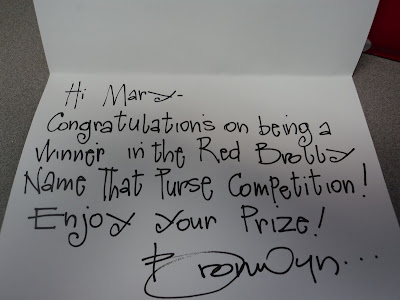 Hi Mary-
Congratulations on being a
Winner in the Red Brolly
Name That Purse Competition!
Enjoy your Prize!
Bronwyn...